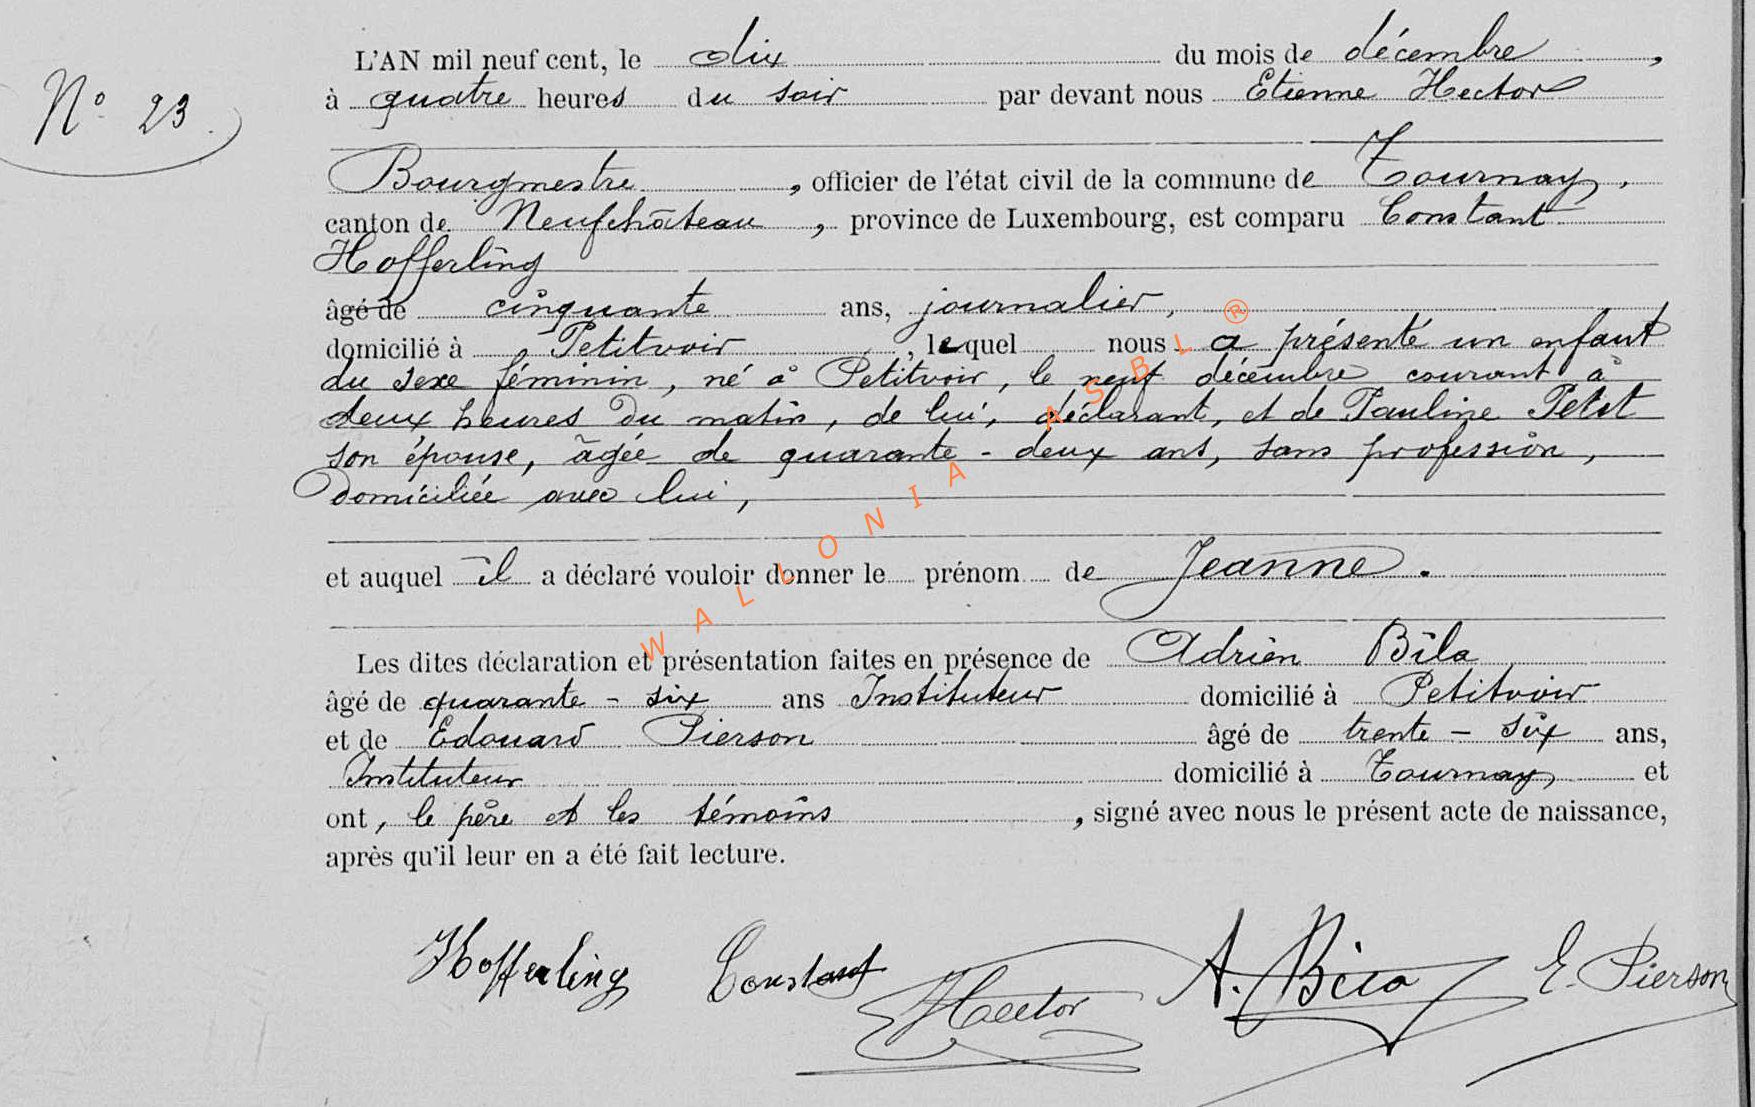 N° 23.
L'AN mil neuf cent, le dix du mois de décembre,
à quatre heures du soir par devant nous Etienne Hector
Bourgmestre, officier de l'état civil de la commune de Tournay,
canton de Neufchâteau, province de Luxembourg, est comparu Constant
Hofferling
âgé de cinquante ans, journalier,
domicilié à Petitvoir, lequel nous a présenté un enfant
du sexe féminin, né à Petitvoir, le neuf décembre courant à
deux heures du matin, de lui, déclarant, et de Pauline Petit
son épouse, âgée de quarante-deux ans, sans profession,
domiciliée avec lui,
et auquel il a déclaré vouloir donner le prénom de Jeanne.
Les dites déclaration et présentation faites en présence de Adrien
âgé de quarante-six ans Instituteur domicilié à Petitvoir
et de Edouard Pierson âgé de trente-six ans,
Instituteur domicilié à Tournay, et
ont, le père et les témoins, signé avec nous le présent acte de naissance,
après qu'il leur en a été fait lecture.
Hofferling Constant Hector A. E. Pierson
WALLONIA ASBL ®